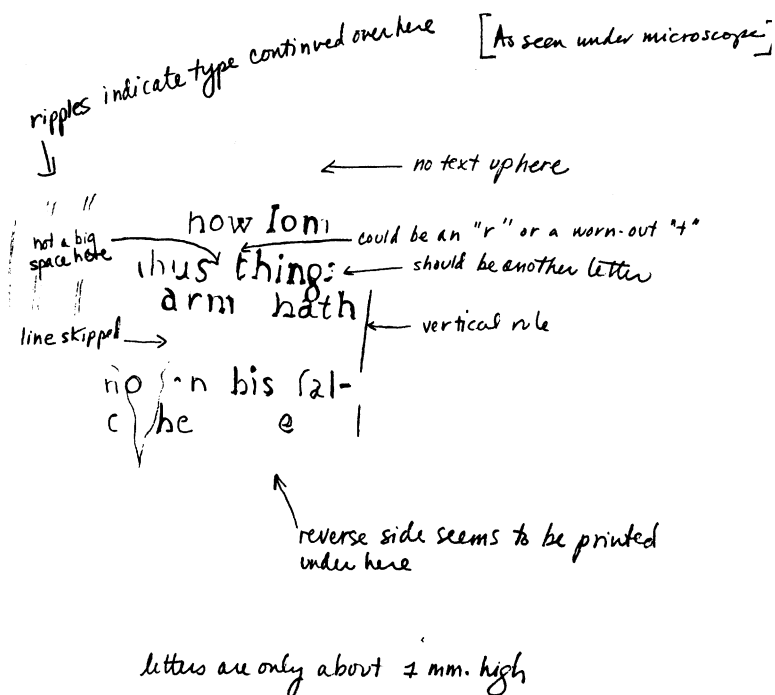 ripples indicate type continued over here
[As seen under microscope]
no text up here
now Iom
could be an "r" or a worn-out "t"
not a big
space here
thus thing:
should be another letter
arm hath
vertical rule
line skipped
no bis ſal-
c he e
reverse side seems to be printed
under here
letters are only about 1 mm. high